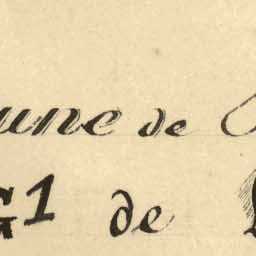 une de
G1 de